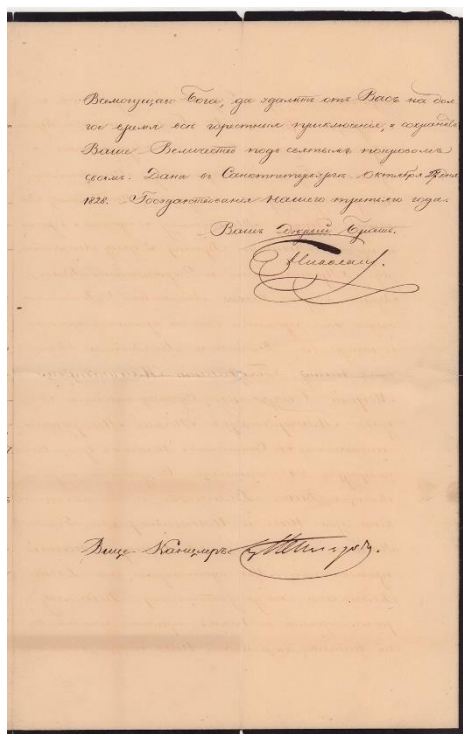 Всемогущаго Бога, да удалитъ отъ Васъ на дол-
гое время всѣ горестныя приключенія, и сохранитъ
Ваше Величество подъ святымъ покровомъ
своимъ. Данъ въ Санктпетербургѣ Октября дня
1828. Государствованія Нашего третьяго года.
Вашъ добрый Братъ.
Николай.
Вице-Канцлеръ